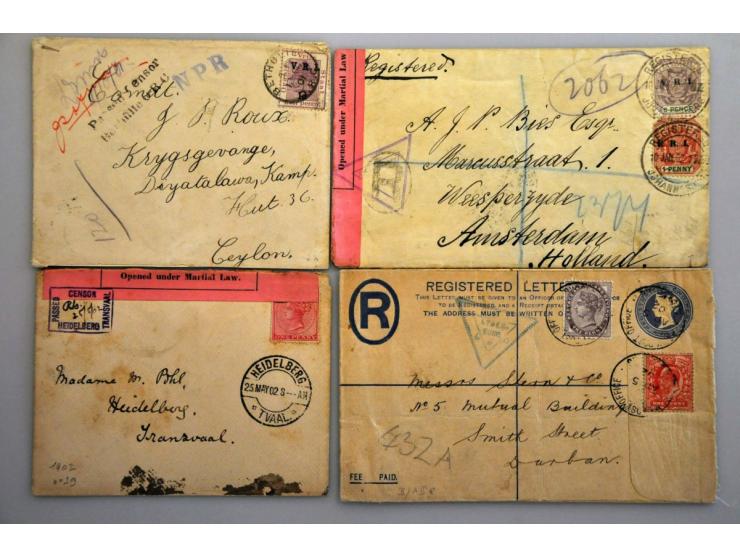 Passed Censor
NPR
G. J. Roux.
Krygsgevange,
Diyatalawa, Kamp.
Hut 36
Ceylon.
V.R.I.
Opened under Martial Law
Registered.
2062
A. J. P. Bies Esqr.
Marcusstraat, 1.
Weesperzyde
Amsterdam
Holland.
V.R.I.
6 PENCE
REGISTERED
E.R.I.
1 PENNY
JOHANNESBURG
Opened under Martial Law.
PASSED
CENSOR
HEIDELBERG
TRANSVAAL
ONE PENNY
HEIDELBERG
25 MAY 02
TVAAL
Madame M. Bhl,
Heidelberg,
Transvaal.
1902
R
REGISTERED LETTER
THIS LETTER MUST BE GIVEN TO AN OFFICER OF
TO BE REGISTERED, AND A RECEIPT OBTAINED
THE ADDRESS MUST BE WRITTEN ON
Messrs Stern & Co.
No 5 Mutual Building
Smith Street
Durban.
432A
FEE PAID.